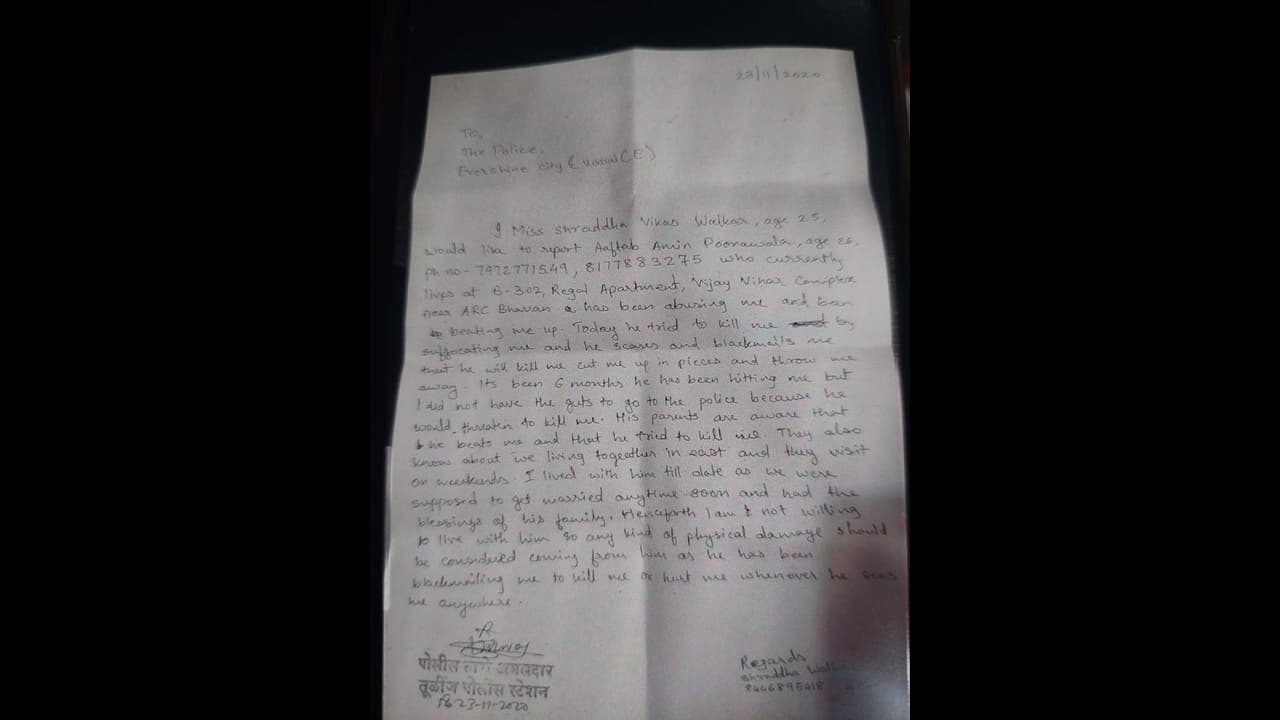 23/11/2020
To,
The Police,
Evershine city (E)
I Miss Shraddha Vikas Walkar, age 25,
would like to report Aaftab Amin Poonawala, age 26,
ph no- 7972771549, 8177883275 who currently
lives at B-302, Regal Apartment, Vijay Vihar Complex
near ARC Bhavan has been abusing me and been
beating me up. Today he tried to kill me by
suffocating me and he scares and blackmails me
that he will kill me cut me up in pieces and throw me
away. Its been 6 months he has been hitting me but
I did not have the guts to go to the police because he
would threatin to kill me. His parents are aware that
he beats me and that he tried to kill me. They also
know about we living togeather in east and they visit
on weekends. I lived with him till date as we were
supposed to get married anytime soon and had the
blessings of his family. Henceforth I am not willing
to live with him so any kind of physical damage should
be considered coming from him as he has been
blackmailing me to kill me or hurt me whenever he sees
me anywhere.
Regards
Shraddha
8446895418
पोलीस ठाणे अंमलदार
तूळींज पोलीस स्टेशन
23-11-2020